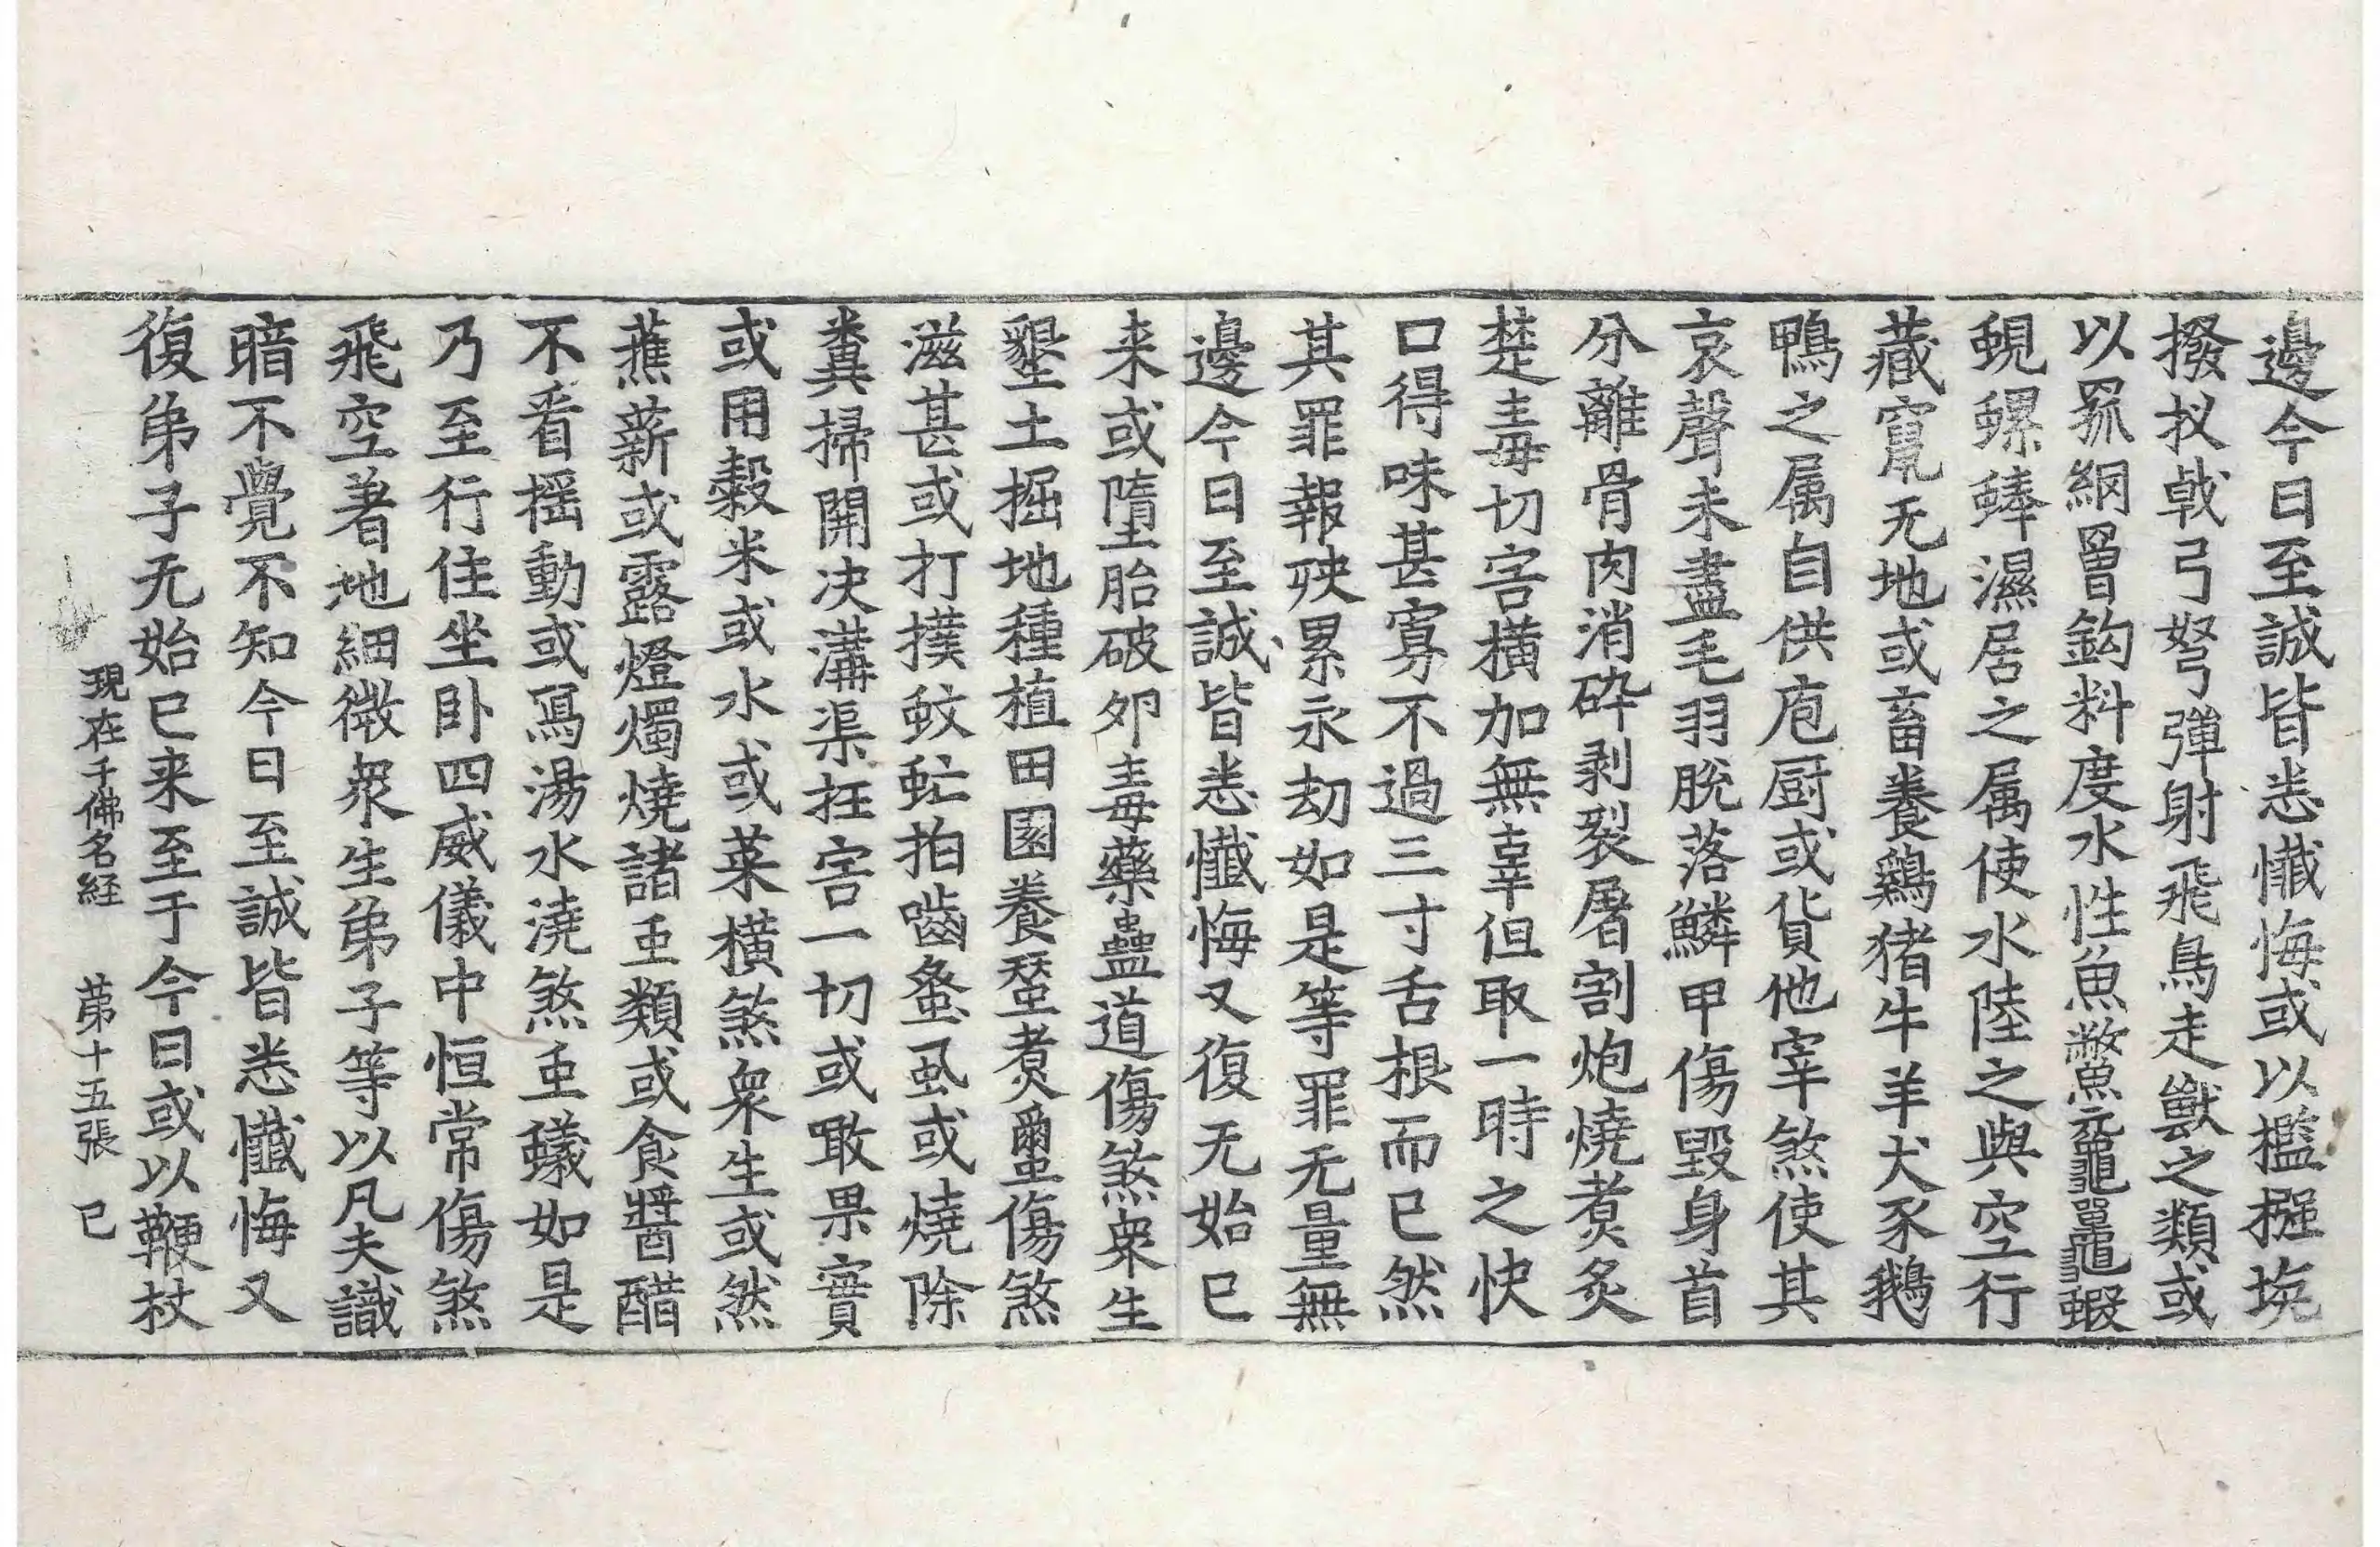 邊今日至誠皆悉懺悔或以檻㯫坑
撥扠戟弓弩彈射飛鳥走獸之類或
以罛網罾鈎料度水性魚鱉黿鼉蝦
蜆螺蜯濕居之属使水陸之與空行
藏竄无地或畜養鷄猪牛羊犬豕鵝
鴨之属自供庖厨或貨他宰煞使其
哀聲未盡毛羽脫落鱗甲傷毀身首
分離骨肉消碎剥裂屠割炮燒煮炙
楚毒切害橫加無辜但取一時之快
口得味甚寡不過三寸舌根而已然
其罪報殃累永劫如是等罪无量無
邊今日至誠皆悉懺悔又復无始已
来或墮胎破卵毒藥蠱道傷煞衆生
墾土掘地種植田園養蚕煮蠒傷煞
滋甚或打撲蚊虻拍嚙蚤虱或燒除
糞掃開决溝渠抂害一切或噉果實
或用穀米或水或菜橫煞衆生或然
蕉薪或露燈燭燒諸䖝類或食醬醋
不看揺動或冩湯水澆煞䖝蟻如是
乃至行住坐卧四威儀中恒常傷煞
飛空著地細微衆生弟子等以凡夫識
暗不覺不知今日至誠皆悉懺悔又
復弟子无始已来至于今日或以鞭杖
現在千佛名経　第十五張　已